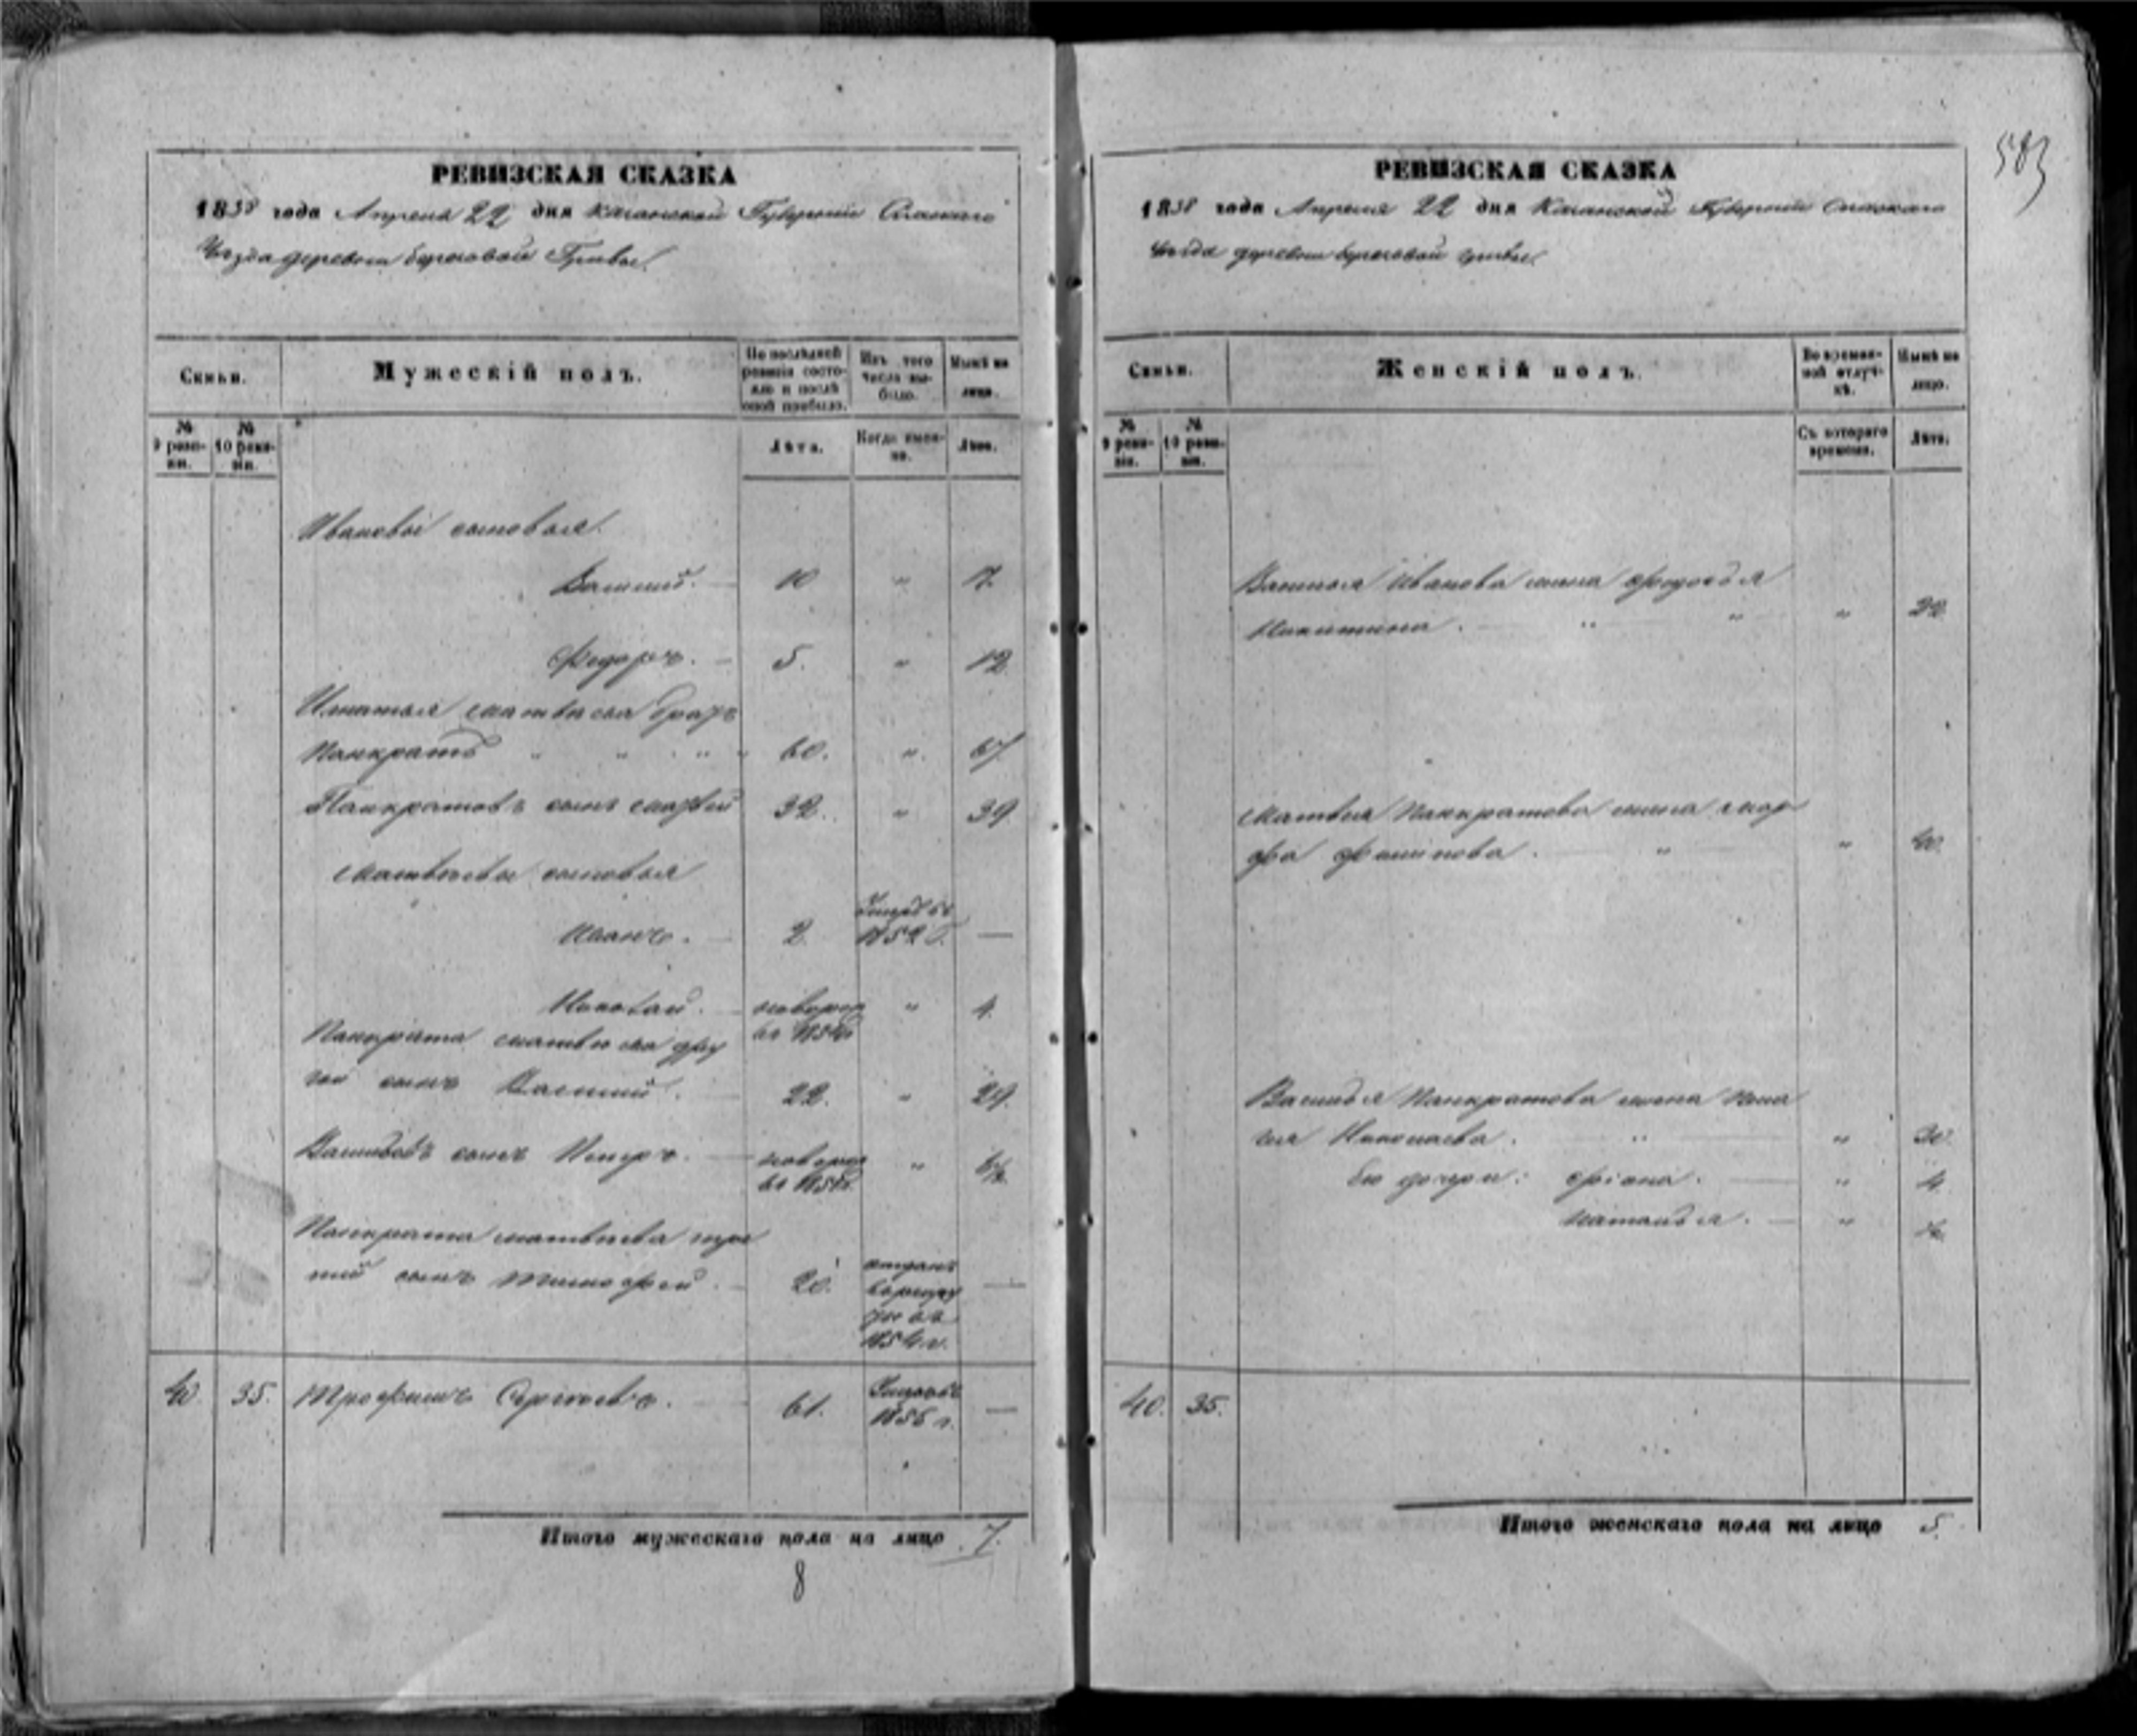 РЕВИЗСКАЯ СКАЗКА
1858 года Апреля 22 дня Казанской Губерніи Спаскаго
Уѣзда деревни Береговой Гривы
Семьи.
Мужескій полъ.
По послѣдней ревизіи состояло и послѣ оной прибыло.
Изъ того числа выбыло.
Нынѣ на лицо.
№ 9 ревизіи.
№ 10 ревизіи.
Лѣта.
Когда именно.
Лѣта.
Ивановы сыновья
Василий. 10 " 17
Федоръ. 5. " 12
Игнатья Матвѣева братъ
Панкратъ " " " " 60. " 67
Панкратовъ сынъ Матвей 32. " 39
Матвеевы сыновья
Иванъ. 2. 1852 —
Николай. новорож " 4.
въ 1854
Панкрата Матвѣева дру
гой сынъ Василий. 22. " 29.
Васильевъ сынъ Петръ. новорож "
Панкрата Матвѣева тре
тий сынъ Тимофей. 20. —
1854 г.
40. 35. Трофимъ Сергѣевъ. 61. —
1856 г.
Итого мужескаго пола на лицо 7.
8
583
РЕВИЗСКАЯ СКАЗКА
1858 года Апреля 22 дня Казанской Губерніи Спаскаго
Уѣзда деревни Береговой Гривы
Семьи.
Женскій полъ.
Во временной отлучкѣ.
Нынѣ на лицо.
№ 9 ревизіи.
№ 10 ревизіи.
Съ котораго времени.
Лѣта.
Василья Иванова жена Федосья
Никитина. " " " 22
Матвея Панкратова жена Мар
фа " " 40.
Василья Панкратова жена Пела
гия Николаева. " " 30.
Ея дочери: " 4
Наталья. "
40. 35.
Итого женскаго пола на лицо 5.